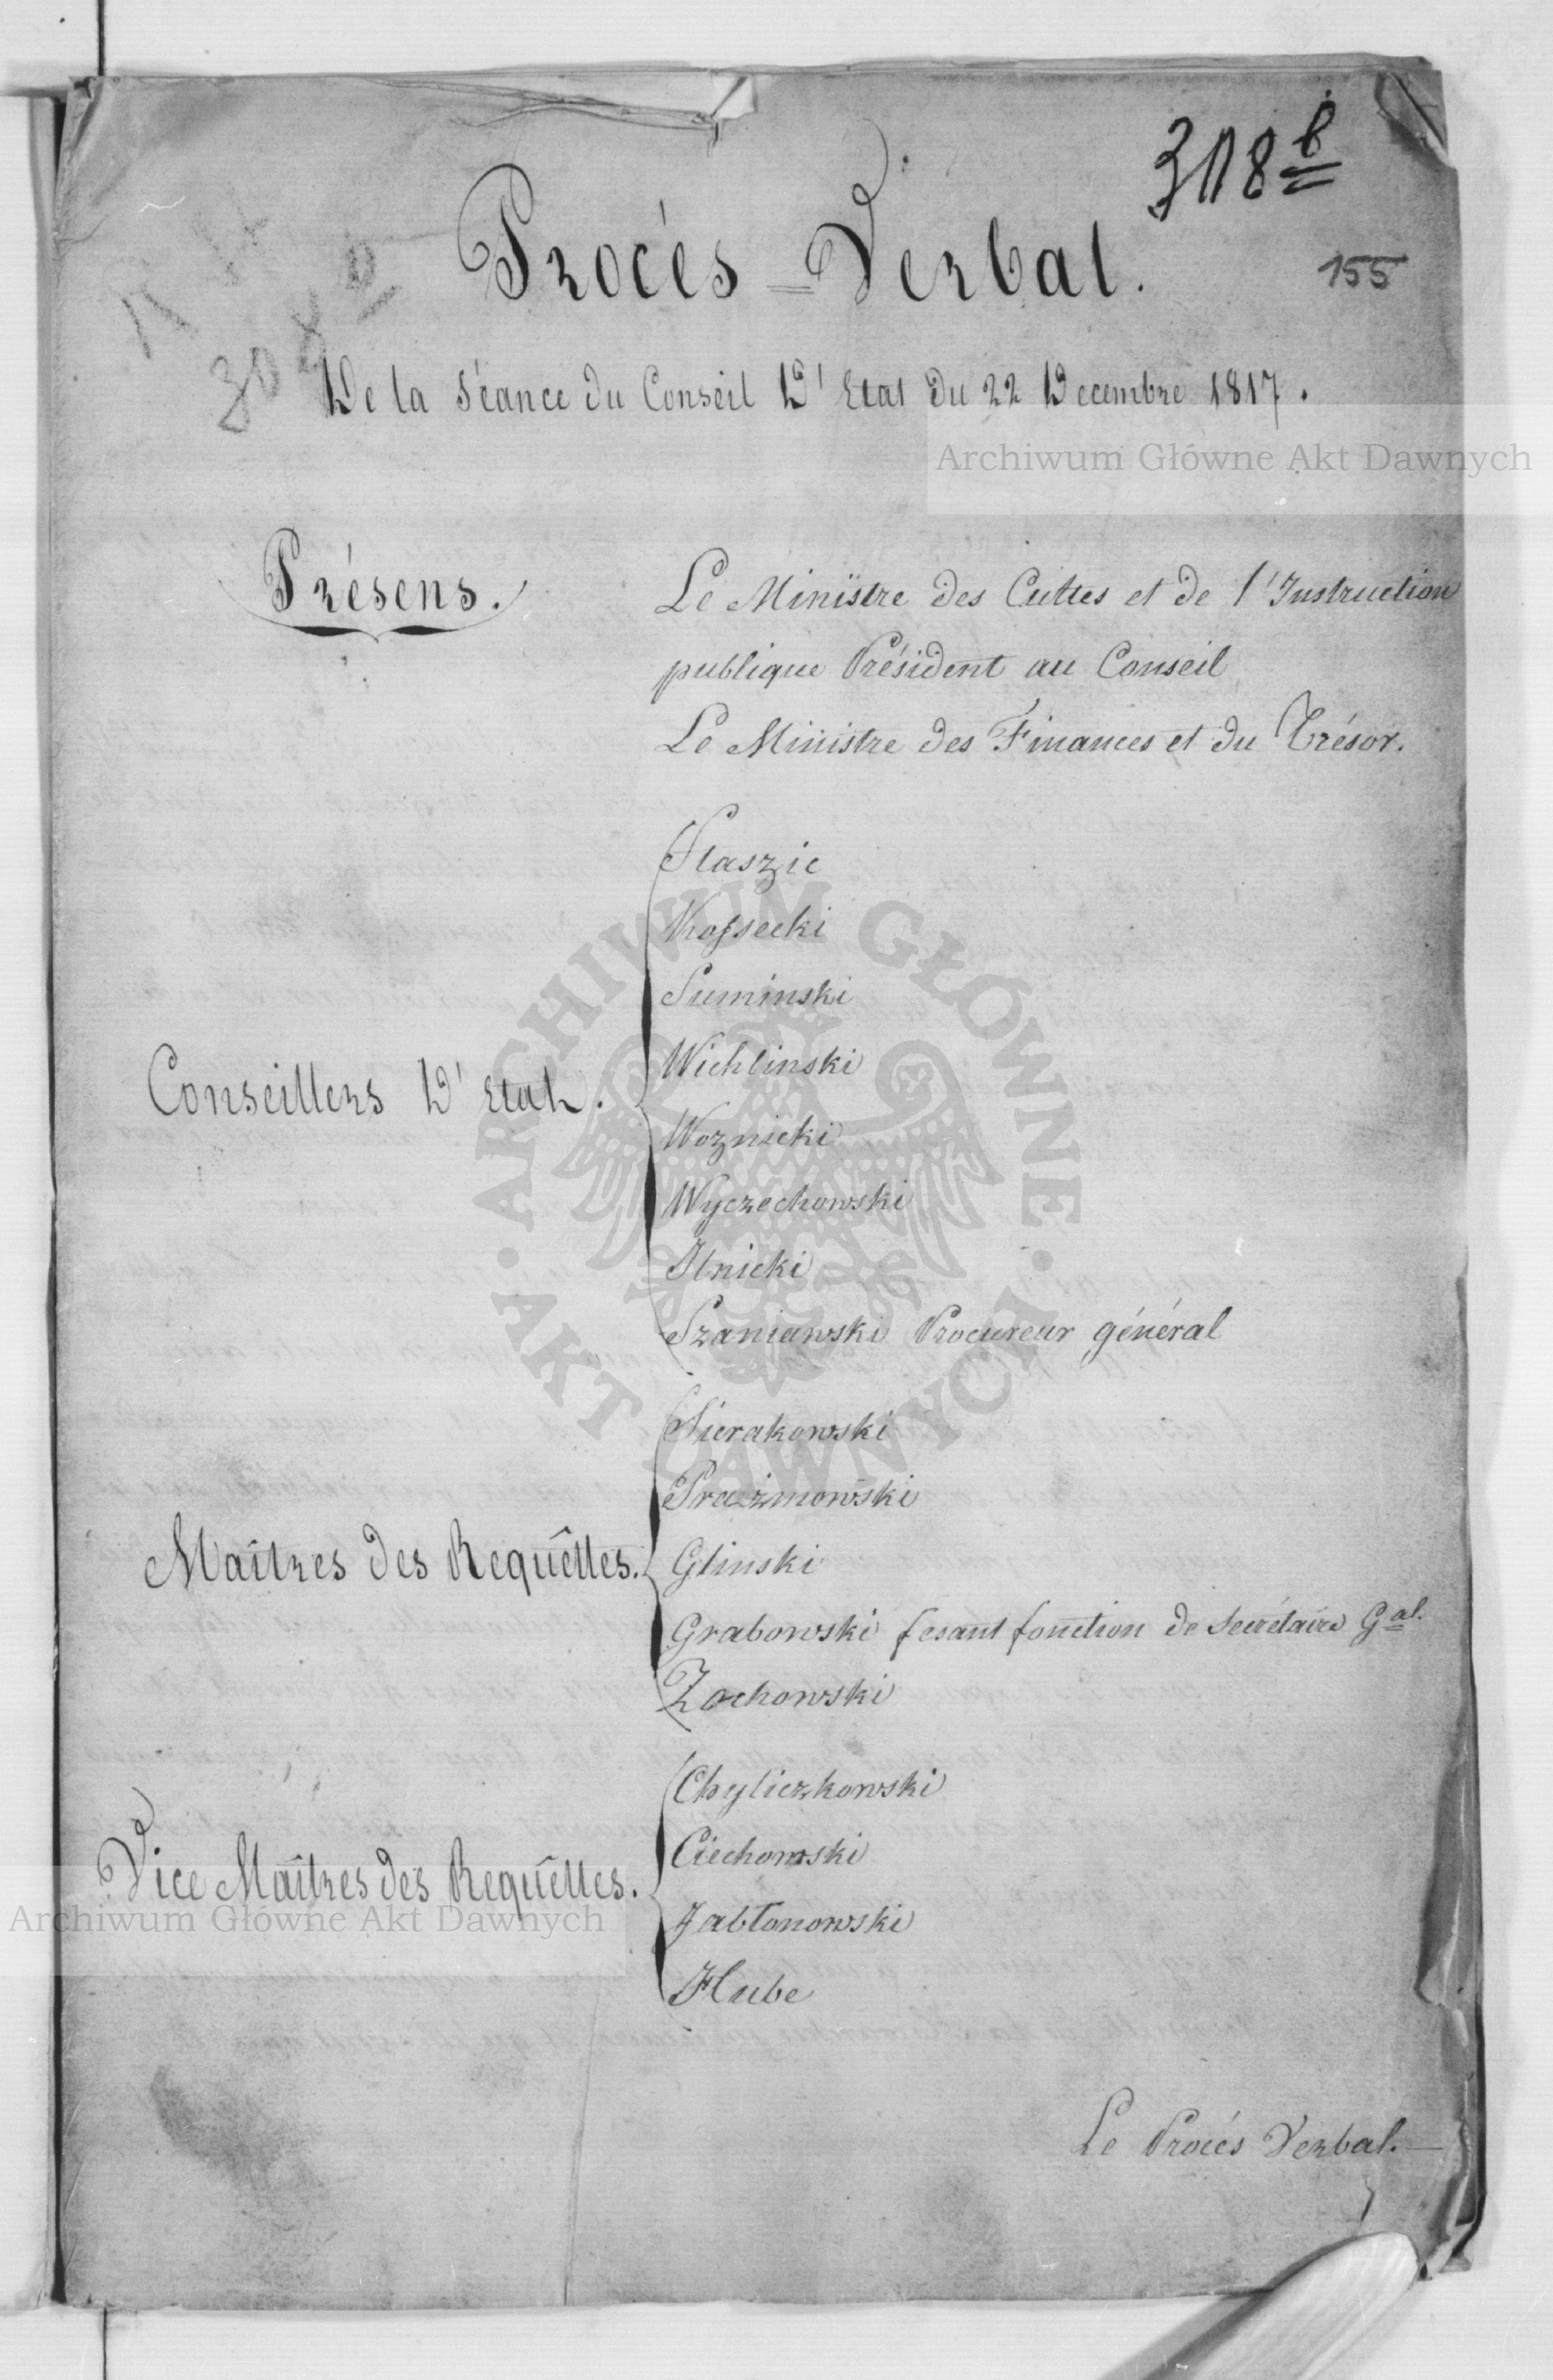 318 b
155
Procés=Verbal.
De la Séance du Conseil D'Etat du 22 Decembre 1817.
Archiwum Główne Akt Dawnych
Présens.
Le Ministre des Cultes et de l'Instruction
publique Président au Conseil
Le Ministre des Finances et du Trésor.
Conseillers D'Etat.
Staszic
Kossecki
Suminski
Wichlinski
Woznicki
Wyczechowski
Ilnicki
Szaniawski Procureur général
Maîtres des Requêttes.
Sierakowski
Prażmowski
Glinski
Grabowski fesant fonction de Secrétaire Gal.
Zochowski
Vice Maîtres des Requêttes.
Chyliczkowski
Ciechomski
Jabłonowski
Hube
Archiwum Główne Akt Dawnych
ARCHIWUM GŁÓWNE AKT DAWNYCH
Le Procés Verbal.